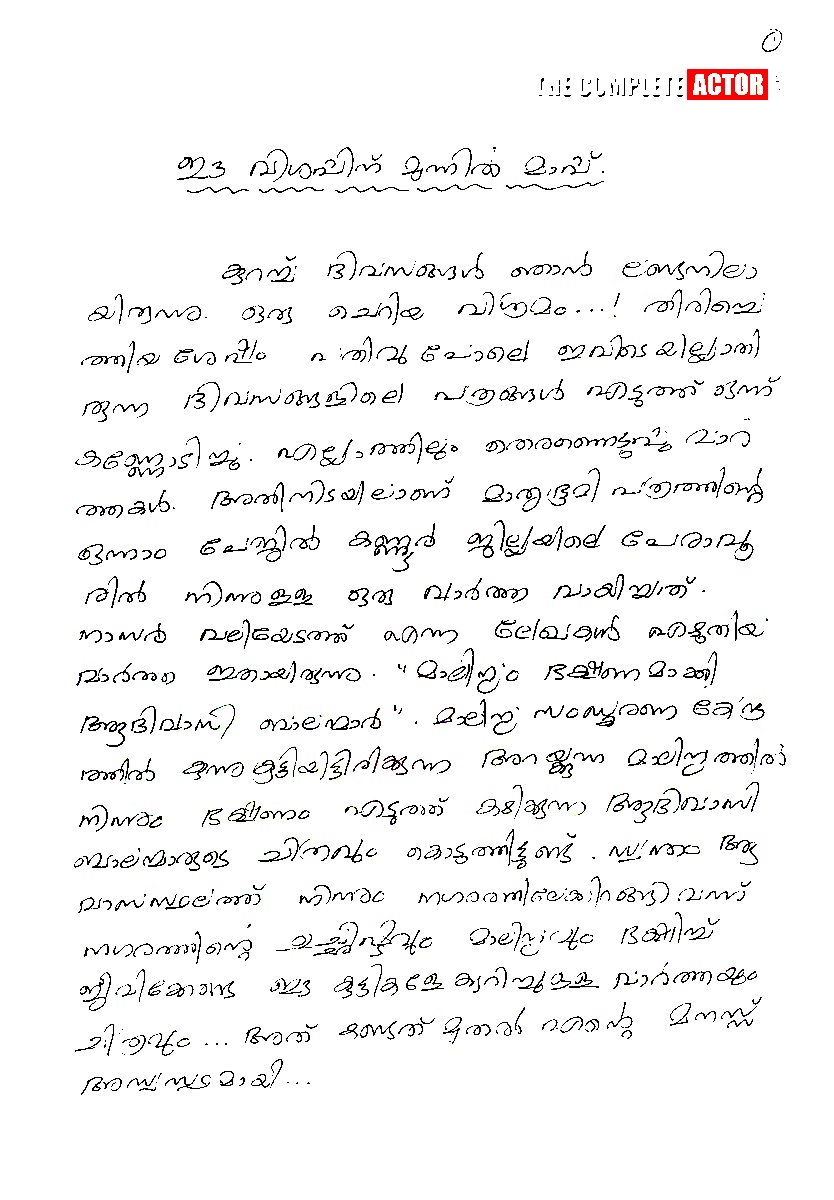 ൧
THE COMPLETE ACTOR
ഈ വിശപ്പിന് മുന്നിൽ മാപ്പ്.
കുറച്ച് ദിവസങ്ങൾ ഞാൻ ലണ്ടനിലാ
യിരുന്നു. ഒരു ചെറിയ വിശ്രമം...! തിരിച്ചെ
ത്തിയ ശേഷം പതിവു പോലെ ഇവിടെയില്ലാതി
രുന്ന ദിവസങ്ങളിലെ പത്രങ്ങൾ എടുത്ത് ഒന്ന്
കണ്ണോടിച്ചു. എല്ലാത്തിലും തെരഞ്ഞെടുപ്പു വാർ
ത്തകൾ. അതിനിടയിലാണ് മാതൃഭൂമി പത്രത്തിന്റെ
ഒന്നാം പേജിൽ കണ്ണൂർ ജില്ലയിലെ പേരാവൂ
രിൽ നിന്നുള്ള ഒരു വാർത്ത വായിച്ചത്.
നാസർ വലിയേടത്ത് എന്ന ലേഖകൻ എഴുതിയ
വാർത്ത ഇതായിരുന്നു. "മാലിന്യം ഭക്ഷണമാക്കി
ആദിവാസി ബാലന്മാർ". മാലിന്യ സംസ്കരണ കേന്ദ്ര
ത്തിൽ കുന്നുകൂട്ടിയിട്ടിരിക്കുന്ന അറയ്ക്കുന്ന മാലിന്യത്തിൽ
നിന്നും ഭക്ഷണം എടുത്ത് കഴിക്കുന്ന ആദിവാസി
ബാലന്മാരുടെ ചിത്രവും കൊടുത്തിട്ടുണ്ട്. സ്വന്തം ആ
വാസസ്ഥലത്ത് നിന്നും നഗരത്തിലേക്കിറങ്ങി വന്ന്
നഗരത്തിന്റെ എച്ചിലും മാലിന്യവും ഭക്ഷിച്ച്
ജീവിക്കേണ്ട ഈ കുട്ടികളേകുറിച്ചുള്ള വാർത്തയും
ചിത്രവും... അത് കണ്ടത് മുതൽ എന്റെ മനസ്സ്
അസ്വസ്ഥമായി...